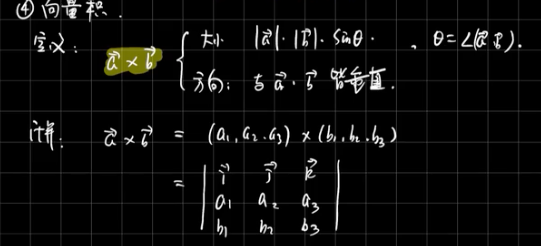 ④ 向量积.
定义: a⃗ × b⃗ { 大小 |a⃗|·|b⃗|·sinθ. , θ=∠(a⃗,b⃗).
方向: 与 a⃗·b⃗ 皆垂直.
计算: a⃗ × b⃗ = (a₁,a₂,a₃) × (b₁,b₂,b₃)
= | i⃗ j⃗ k⃗ |
a₁ a₂ a₃
b₁ b₂ b₃